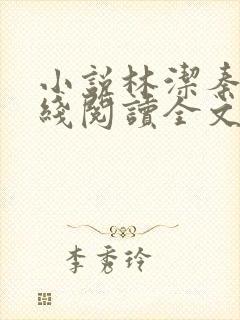 小説林潔秦
綫閱讀全文
李秀玲